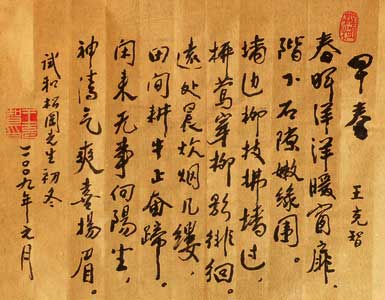 早春
王克智
春晖洋洋暖窗扉,
阶下石隙嫩绿围。
墙边柳枝拂墙过,
拼莺穿柳影徘徊。
远处晨炊烟几缕,
田间耕牛正奋蹄。
闲来无事向阳坐,
神清气爽喜扬眉。
试和松园先生初冬
二〇〇九年元月